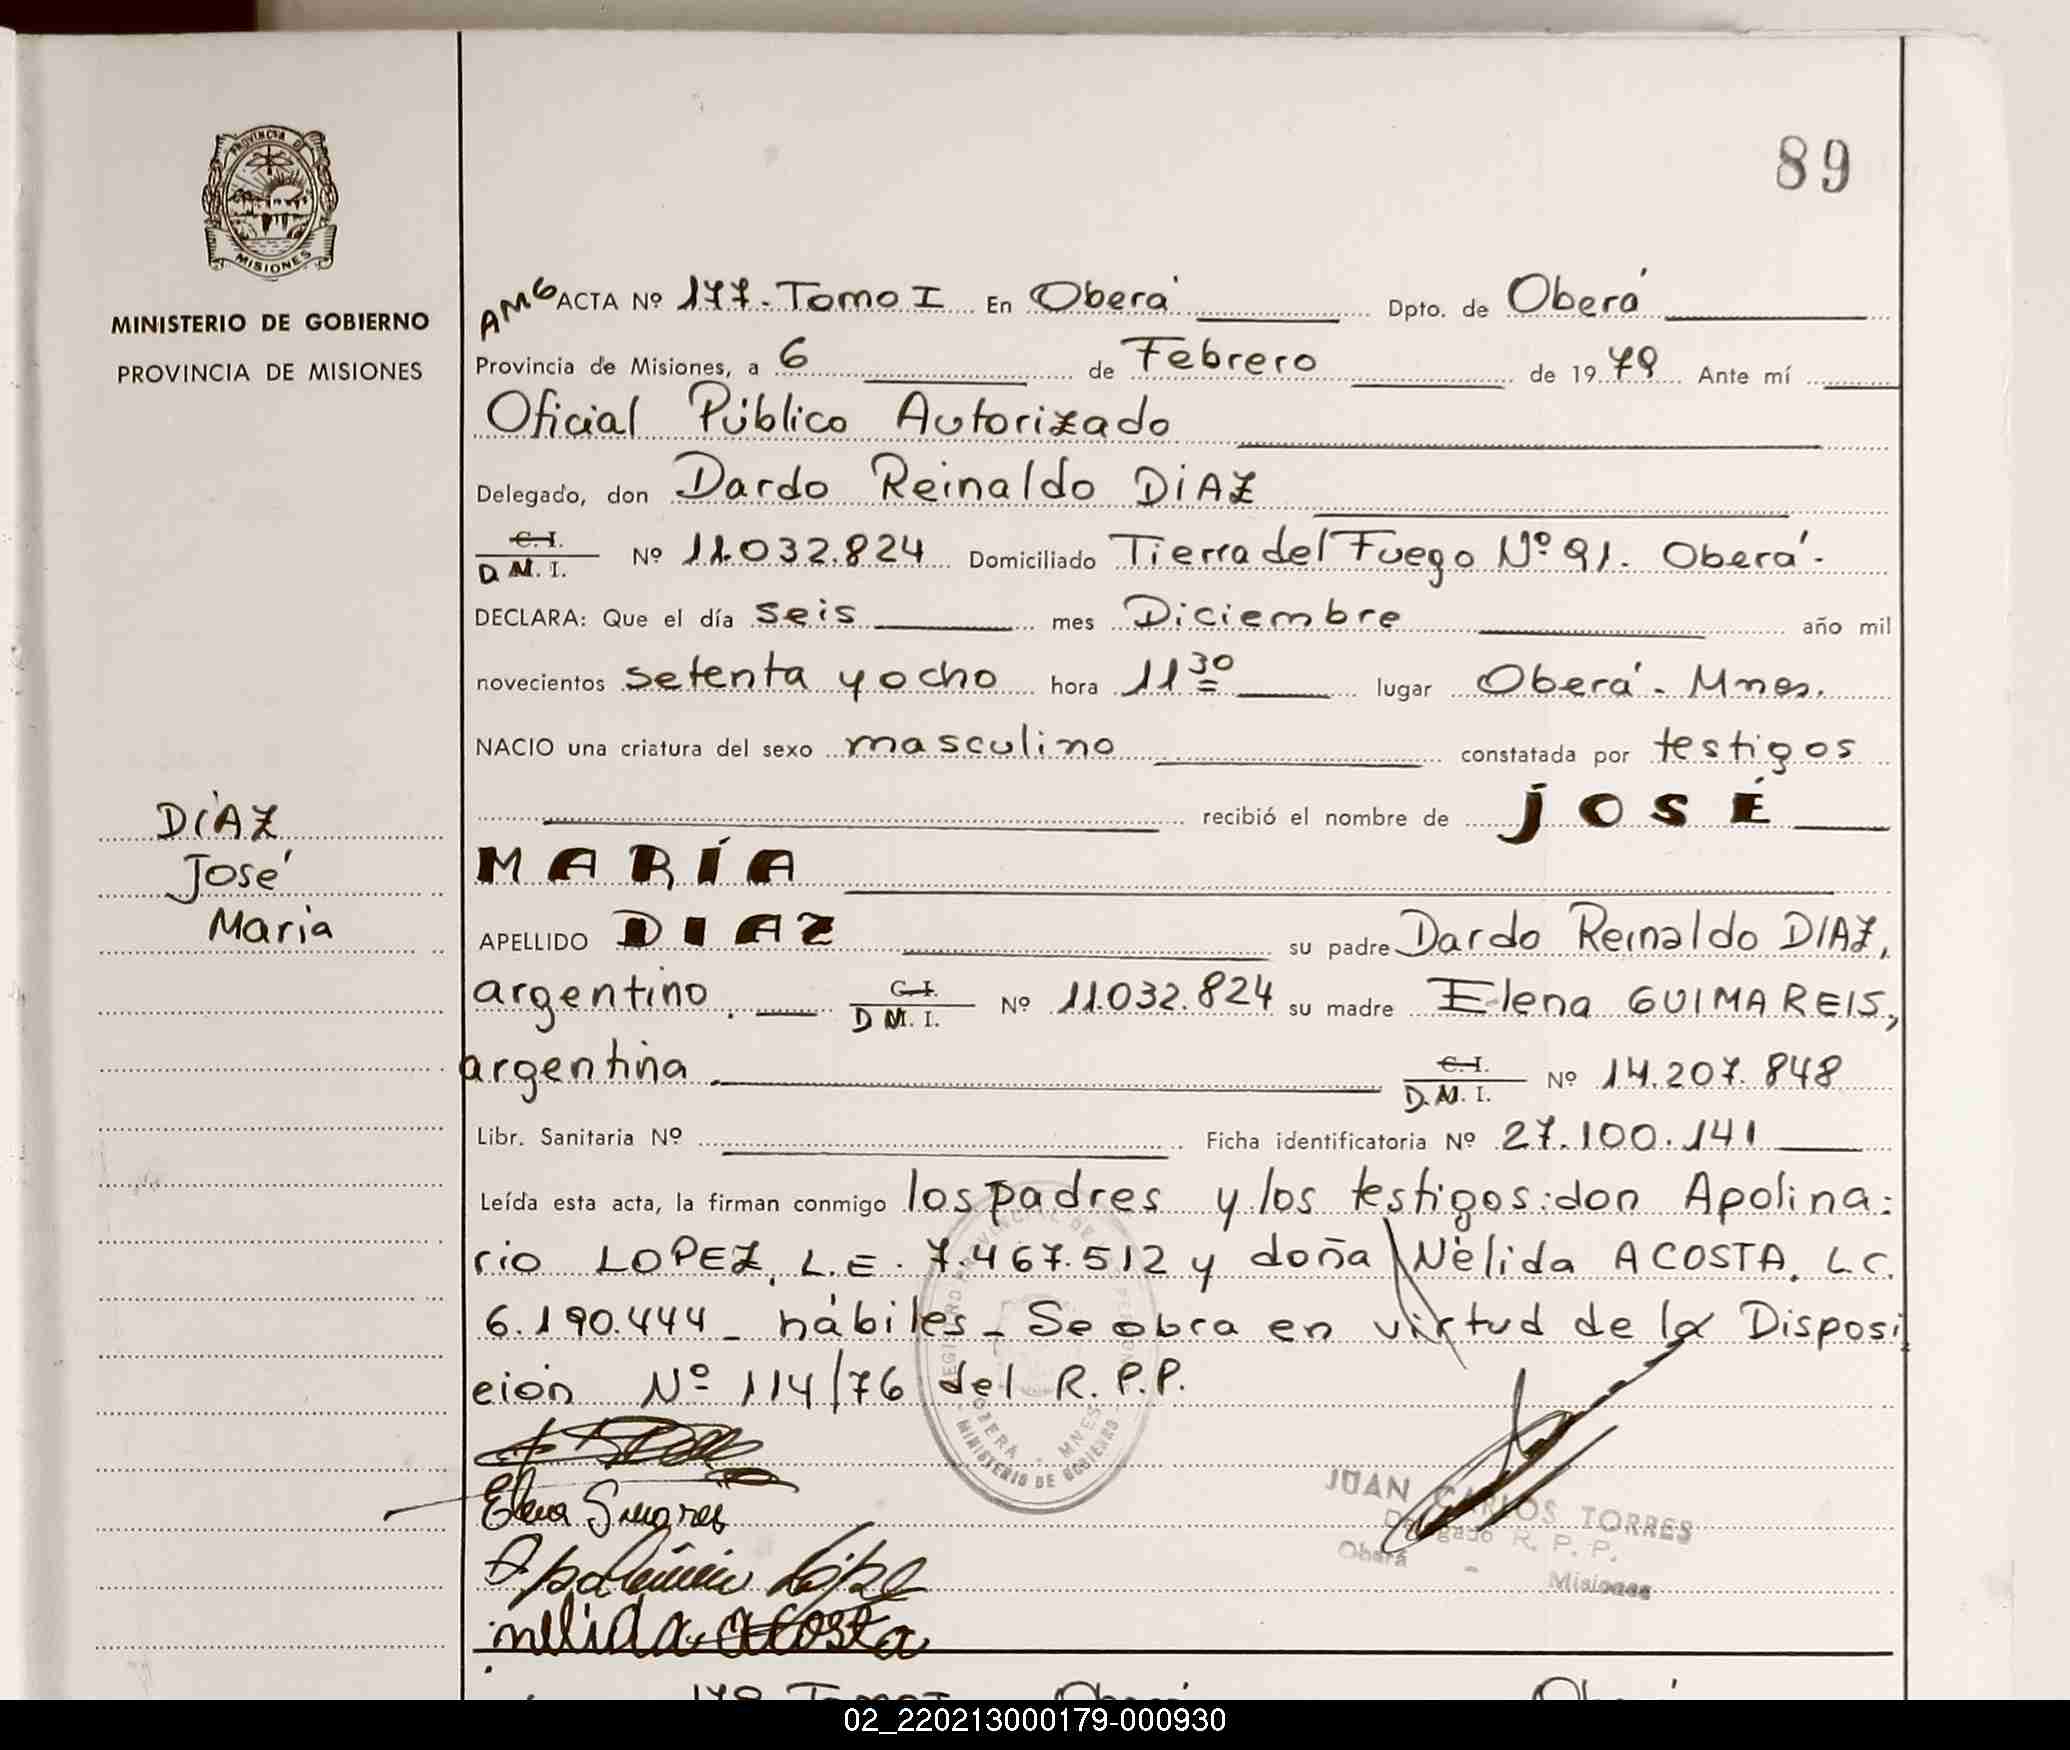 89
PROVINCIA DE
MISIONES
MINISTERIO DE GOBIERNO
PROVINCIA DE MISIONES
AMG ACTA Nº 177.- Tomo I En Oberá Dpto. de Oberá
Provincia de Misiones, a 6 de Febrero de 1979 Ante mí
Oficial Público Autorizado
Delegado, don Dardo Reinaldo DíAZ
C. I.
D M. I. Nº 11.032.824 Domiciliado Tierra del Fuego Nº 91. Oberá.-
DECLARA: Que el día seis mes Diciembre año mil
novecientos setenta y ocho hora 11 30 lugar Oberá.- Mnes.
NACIO una criatura del sexo masculino constatada por testigos
recibió el nombre de JOSÉ
MARÍA
APELLIDO DIAZ su padre Dardo Reinaldo DIAZ,
argentino. C. I. D M. I. Nº 11.032.824 su madre Elena GUIMAREIS,
argentina. C. I. D. M. I. Nº 14.207.848
Libr. Sanitaria Nº Ficha identificatoria Nº 27.100.141
Leída esta acta, la firman conmigo los padres y los testigos: don Apolina:
rio LOPEZ, L.E. 7.467.512 y doña Nélida ACOSTA. LC.
6.190.444 - hábiles - Se obra en virtud de la Disposi
ción Nº 114/76 del R.P.P.
DíAZ
José
Maria
REGISTRO PROVINCIAL DE LAS PERSONAS
OBERA - MNES
MINISTERIO DE GOBIERNO
Elena
JUAN CARLOS TORRES
Delegado R. P. P.
Oberá - Misiones
López
nelida acosta
178 Tomo I Oberá Oberá
02_220213000179-000930